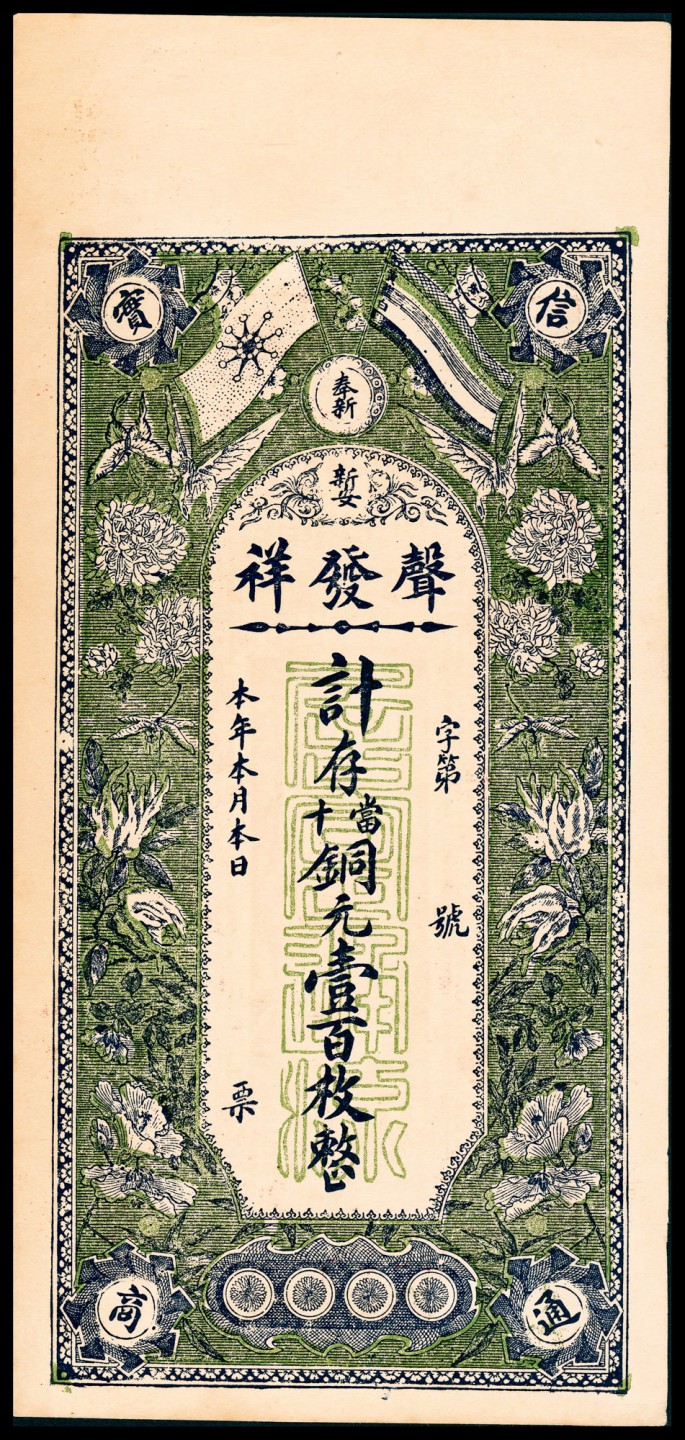 信
寶
通
商
奉新
新安
聲發祥
字第　號
計存當十銅元壹百枚整
本年本月本日　票